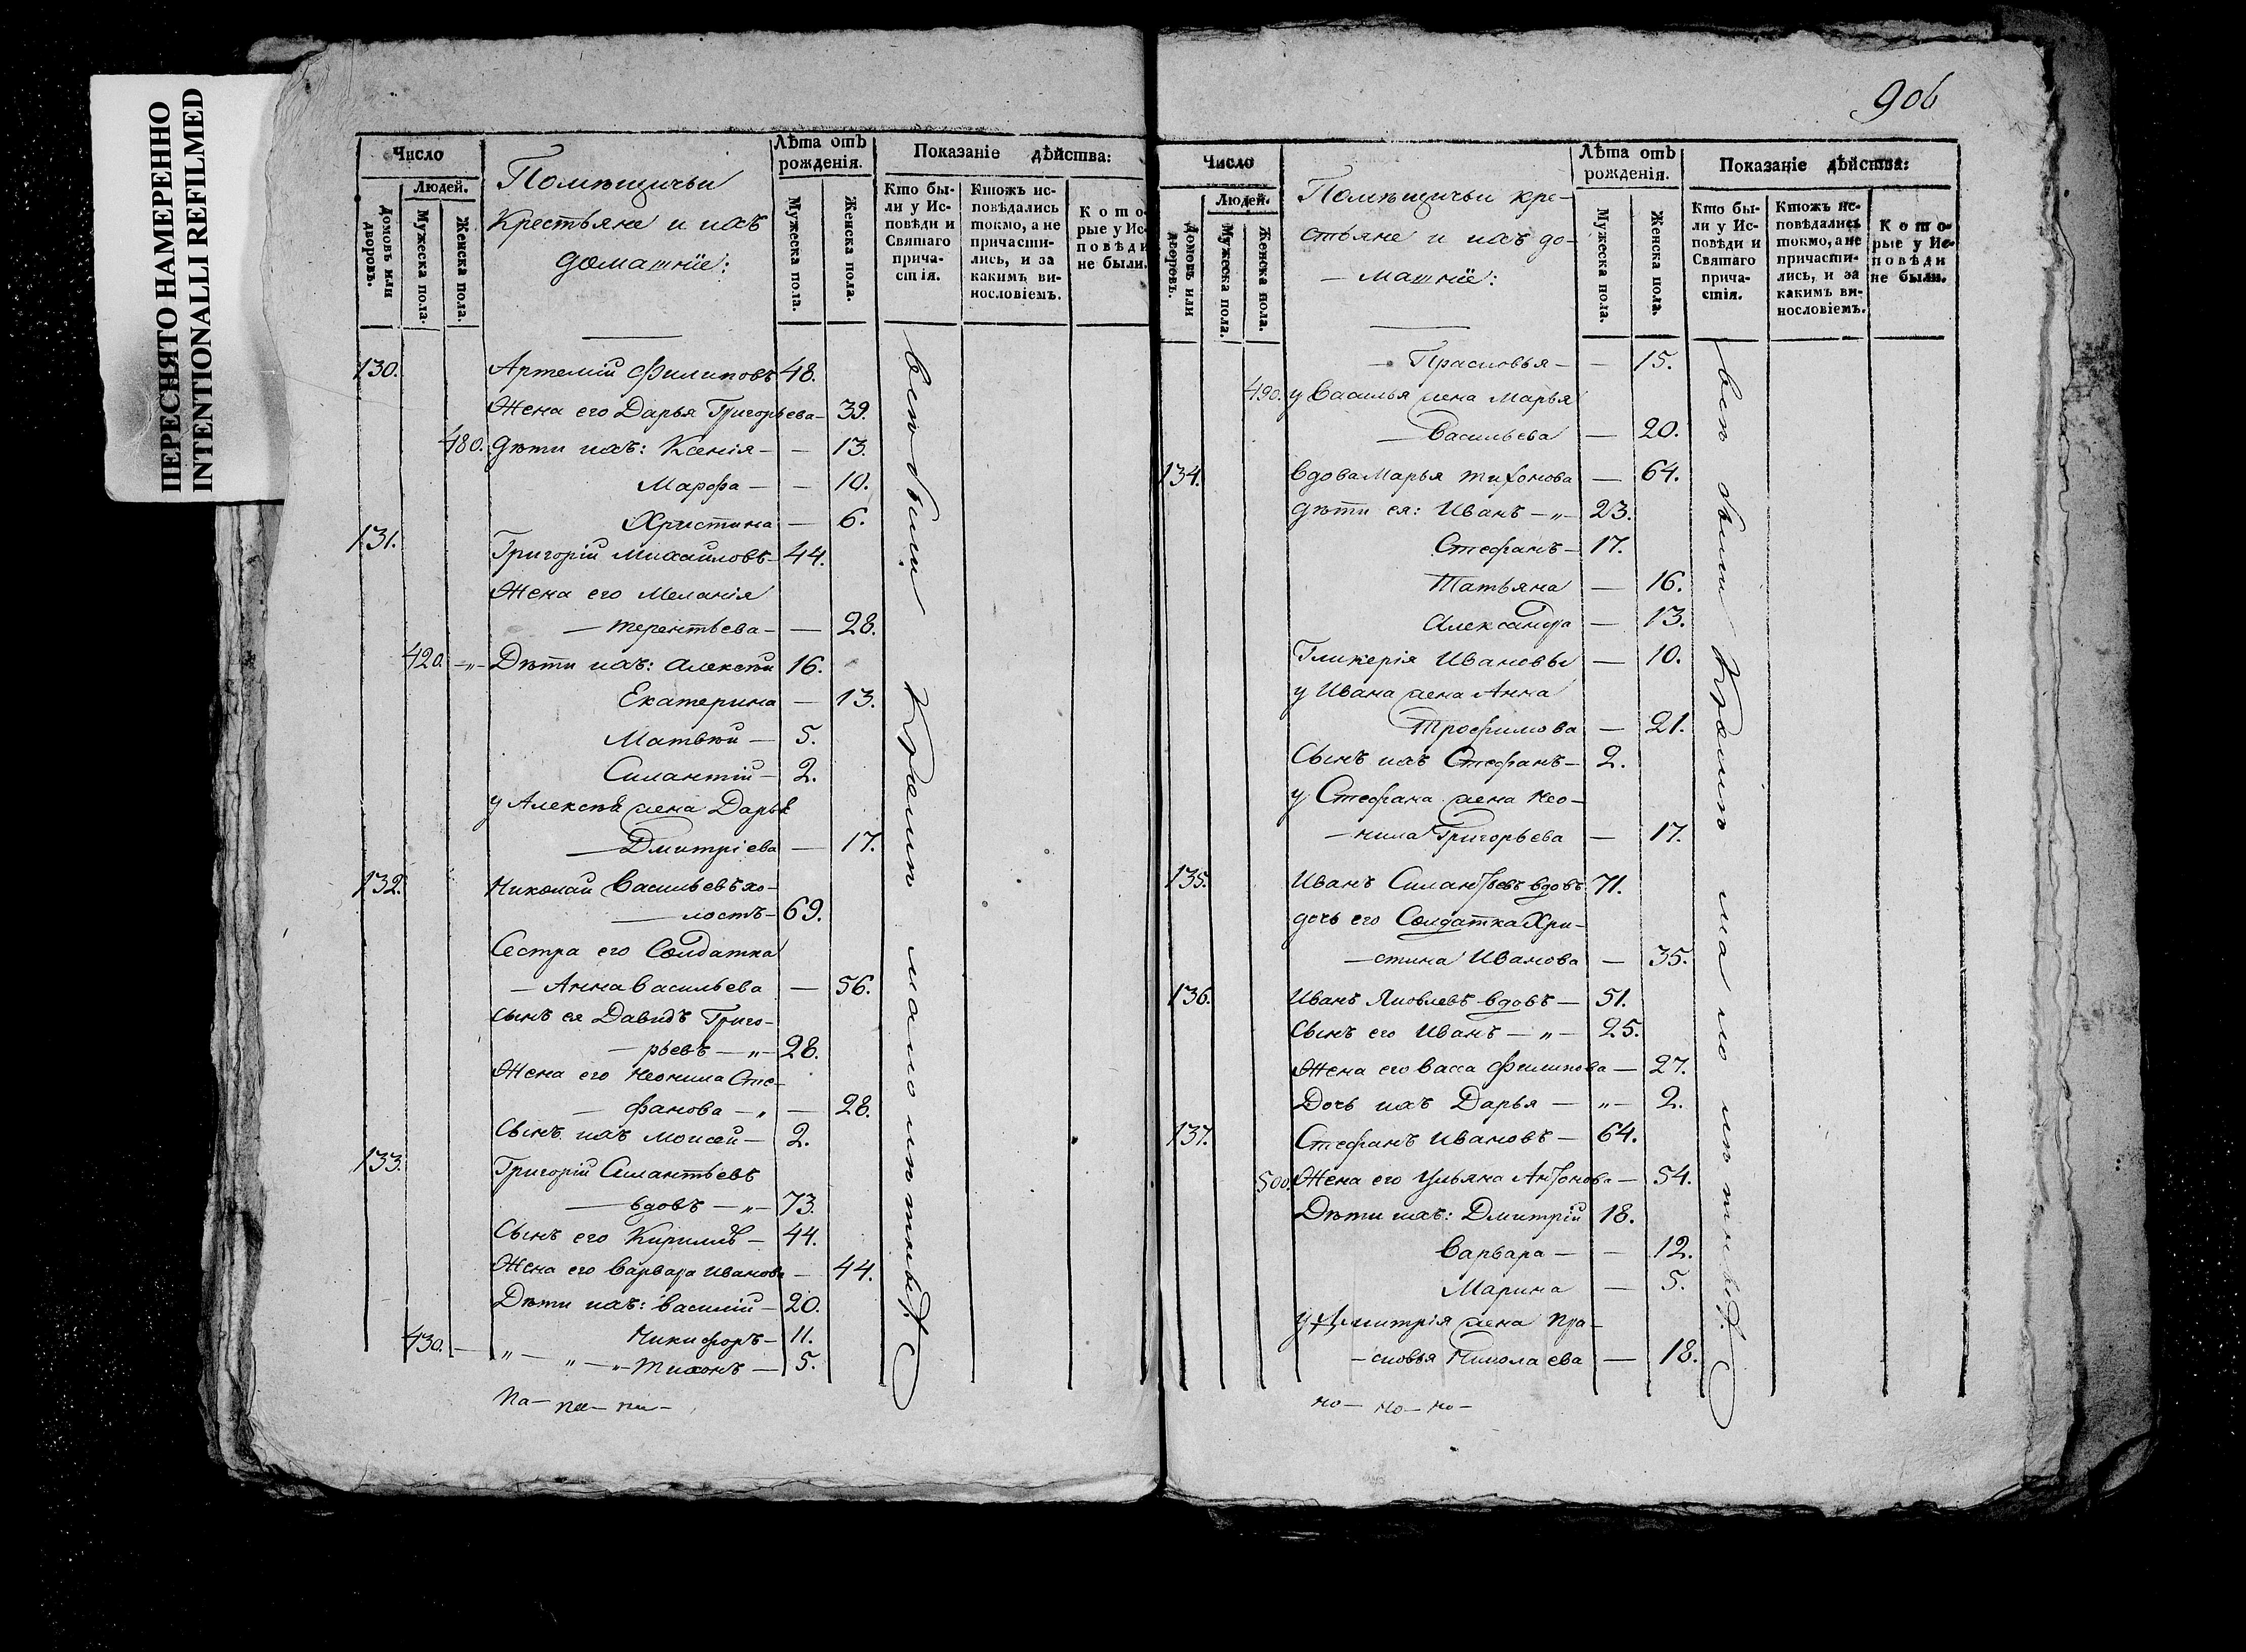 ПЕРЕСНЯТО НАМЕРЕННО
INTENTIONALLI REFILMED
Число
Людей.
Домовъ или дворовъ.
Мужеска пола.
Женска пола.
Помѣщичьи
Крестьяне и ихъ
домашніе:
Лѣта отъ
рожденія.
Мужеска пола.
Женска пола.
Показаніе дѣйства:
Кто бы-
ли у Ис-
повѣди и
Святаго
прича-
стія.
Ктожъ ис-
повѣдались
токмо, а не
причасти-
лись, и за
какимъ ви-
нословіемъ.
Кото-
рые у Ис-
повѣди
не были.
130. Артемій Филиповъ 48.
Жена его Дарья Григорьева — 39.
480. Дѣти ихъ: Ксенія — — 13.
Марфа — — 10.
Христина — 6.
131. Григорій Михайловъ — 44.
Жена его Меланія
— Терентьева — — 28.
420. —„— Дѣти ихъ: Алексѣй 16.
Екатерина — 13.
Матвѣй — 5.
Силантій — 2.
у Алексѣя жена Дарья
— Дмитріева — 17.
132. Николай Васильевъ хо-
— лостъ — 69.
Сестра его Солдатка
— Анна Васильева — 56.
Сынъ ея Давидъ Григо-
— рьевъ —„— 28.
Жена его Неонила Сте-
— фанова —„ — 28.
Сынъ ихъ Моисей — 2.
133. Григорій Силантьевъ
— вдовъ —„— 73.
Сынъ его Кириллъ — 44.
Жена его Варвара Иванова — 44.
Дѣти ихъ: Василій — 20.
Никифоръ — 11.
430. — „ — „ —„— Тихонъ — 5.
всѣ были
кромѣ малолѣтныхъ
906
Число
Людей.
Домовъ или дворовъ.
Мужеска пола.
Женска пола.
Помѣщичьи кре-
стьяне и ихъ до-
— машніе:
Лѣта отъ
рожденія.
Мужеска пола.
Женска пола.
Показаніе дѣйства:
Кто бы-
ли у Ис-
повѣди и
Святаго
прича-
стія.
Ктожъ ис-
повѣдались
токмо, а не
причасти-
лись, и за
какимъ ви-
нословіемъ.
Кото-
рые у Ис-
повѣди
не были.
— Прасковья — — 15.
490. у Василья жена Марья
— Васильева — 20.
134. Вдова Марья Тихонова — 64.
Дѣти ея: Иванъ —„— 23.
Стефанъ — 17.
Татьяна — 16.
Александра — 13.
Гликерія Ивановы — 10.
у Ивана жена Анна
Трофимова — 21.
Сынъ ихъ Стефанъ — 2.
у Стефана жена Нео-
— нила Григорьева — 17.
135. Иванъ Силантьевъ вдовъ 71.
дочь его Солдатка Хри-
— стина Иванова — 35.
136. Иванъ Яковлевъ вдовъ — 51.
Сынъ его Иванъ —„— 25.
Жена его Васса Филипова — 27.
Дочь ихъ Дарья — „— 2.
137. Стефанъ Ивановъ — 64.
500. Жена его Ульяна Антонова — 54.
Дѣти ихъ: Дмитрій 18.
Варвара — — 12.
Марина — 5.
у Дмитрія жена Пра-
— сковья Николаева — 18.
всѣ были
кромѣ малолѣтныхъ
но — но — но —